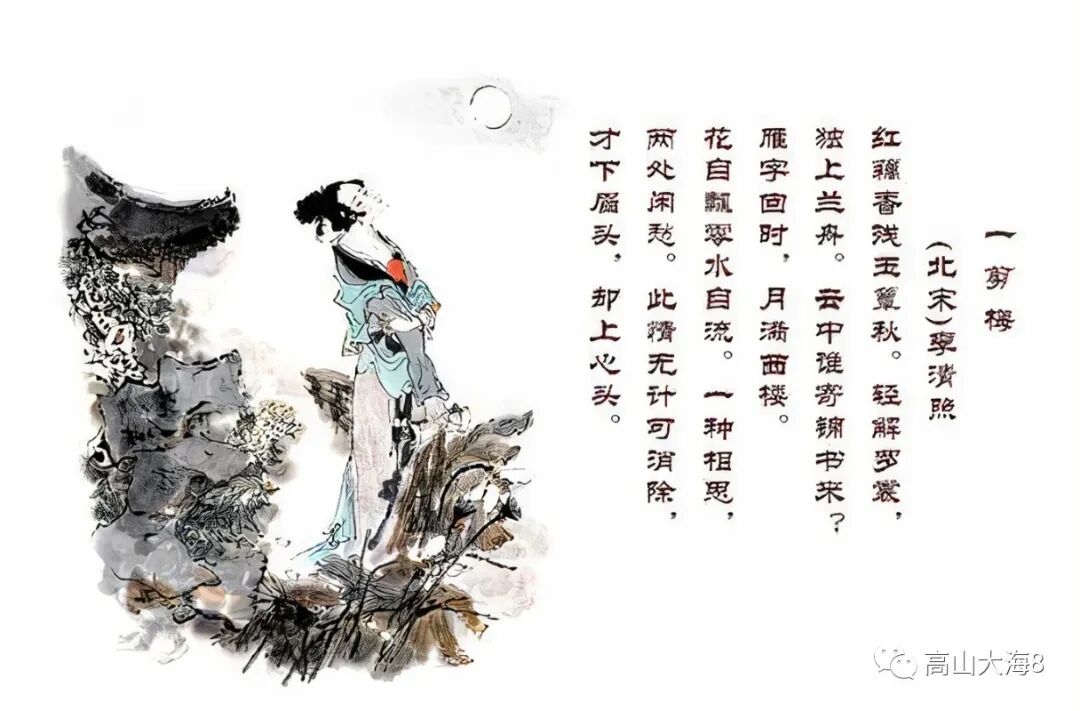 一剪梅
(北宋)李清照
红藕香残玉簟秋。轻解罗裳,
独上兰舟。云中谁寄锦书来?
雁字回时,月满西楼。
花自飘零水自流。一种相思,
两处闲愁。此情无计可消除,
才下眉头,却上心头。
高山大海8